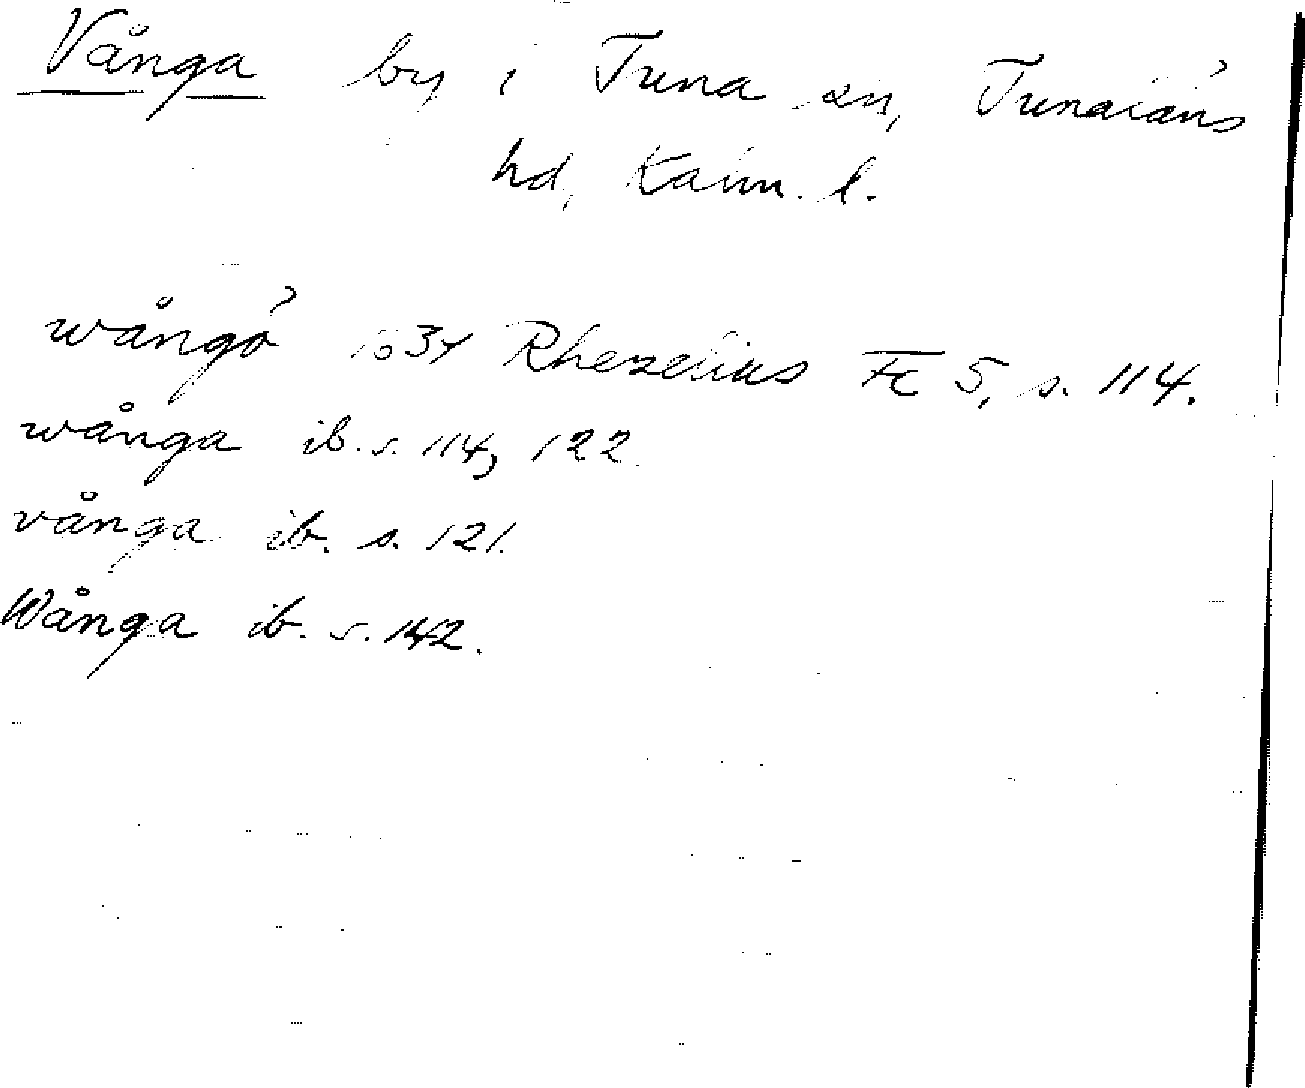 Vånga by i Tuna sn, Tunaläns
hd, Kalm. l.
wångô 1634 Rhezelius Fc 5, s. 114.
wånga ib. s. 114, 122.
vånga ib. s. 121.
Wånga ib. s. 142.